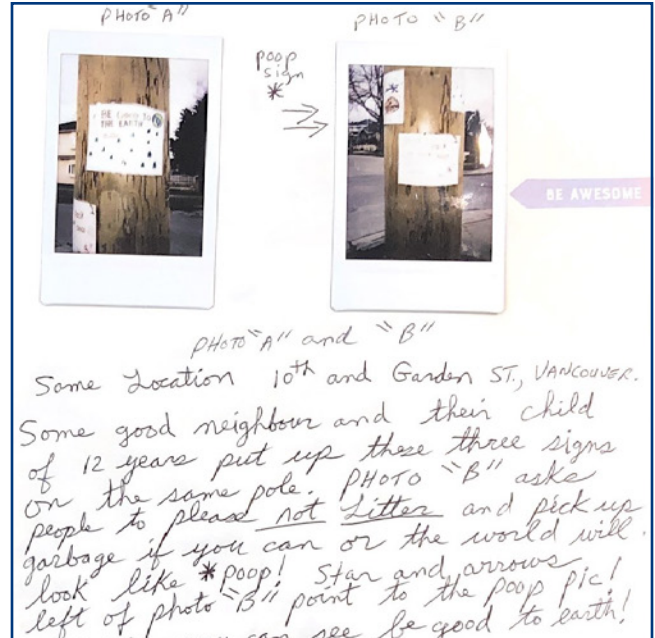 PHOTO "A"
PHOTO "B"
poop
sign
*
BE GOOD TO
THE EARTH
BE AWESOME
PHOTO "A" and "B"
Same Location 10th and Garden ST., VANCOUVER.
Some good neighbour and their child
of 12 years put up these three signs
on the same pole. PHOTO "B" asks
people to please not Litter and pick up
garbage if you can or the world will
look like *poop! Star and arrows
left of photo "B" point to the poop pic!
can see be good to earth!